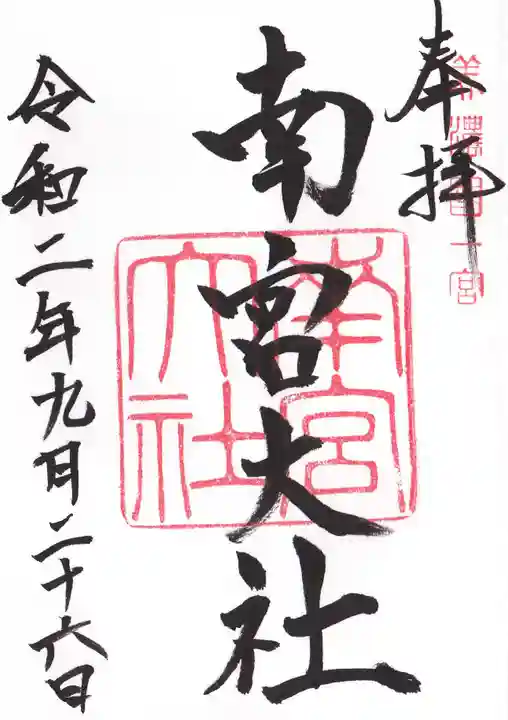 奉拝
美濃國一宮
南宮大社
南宮大社
令和二年九月二十六日